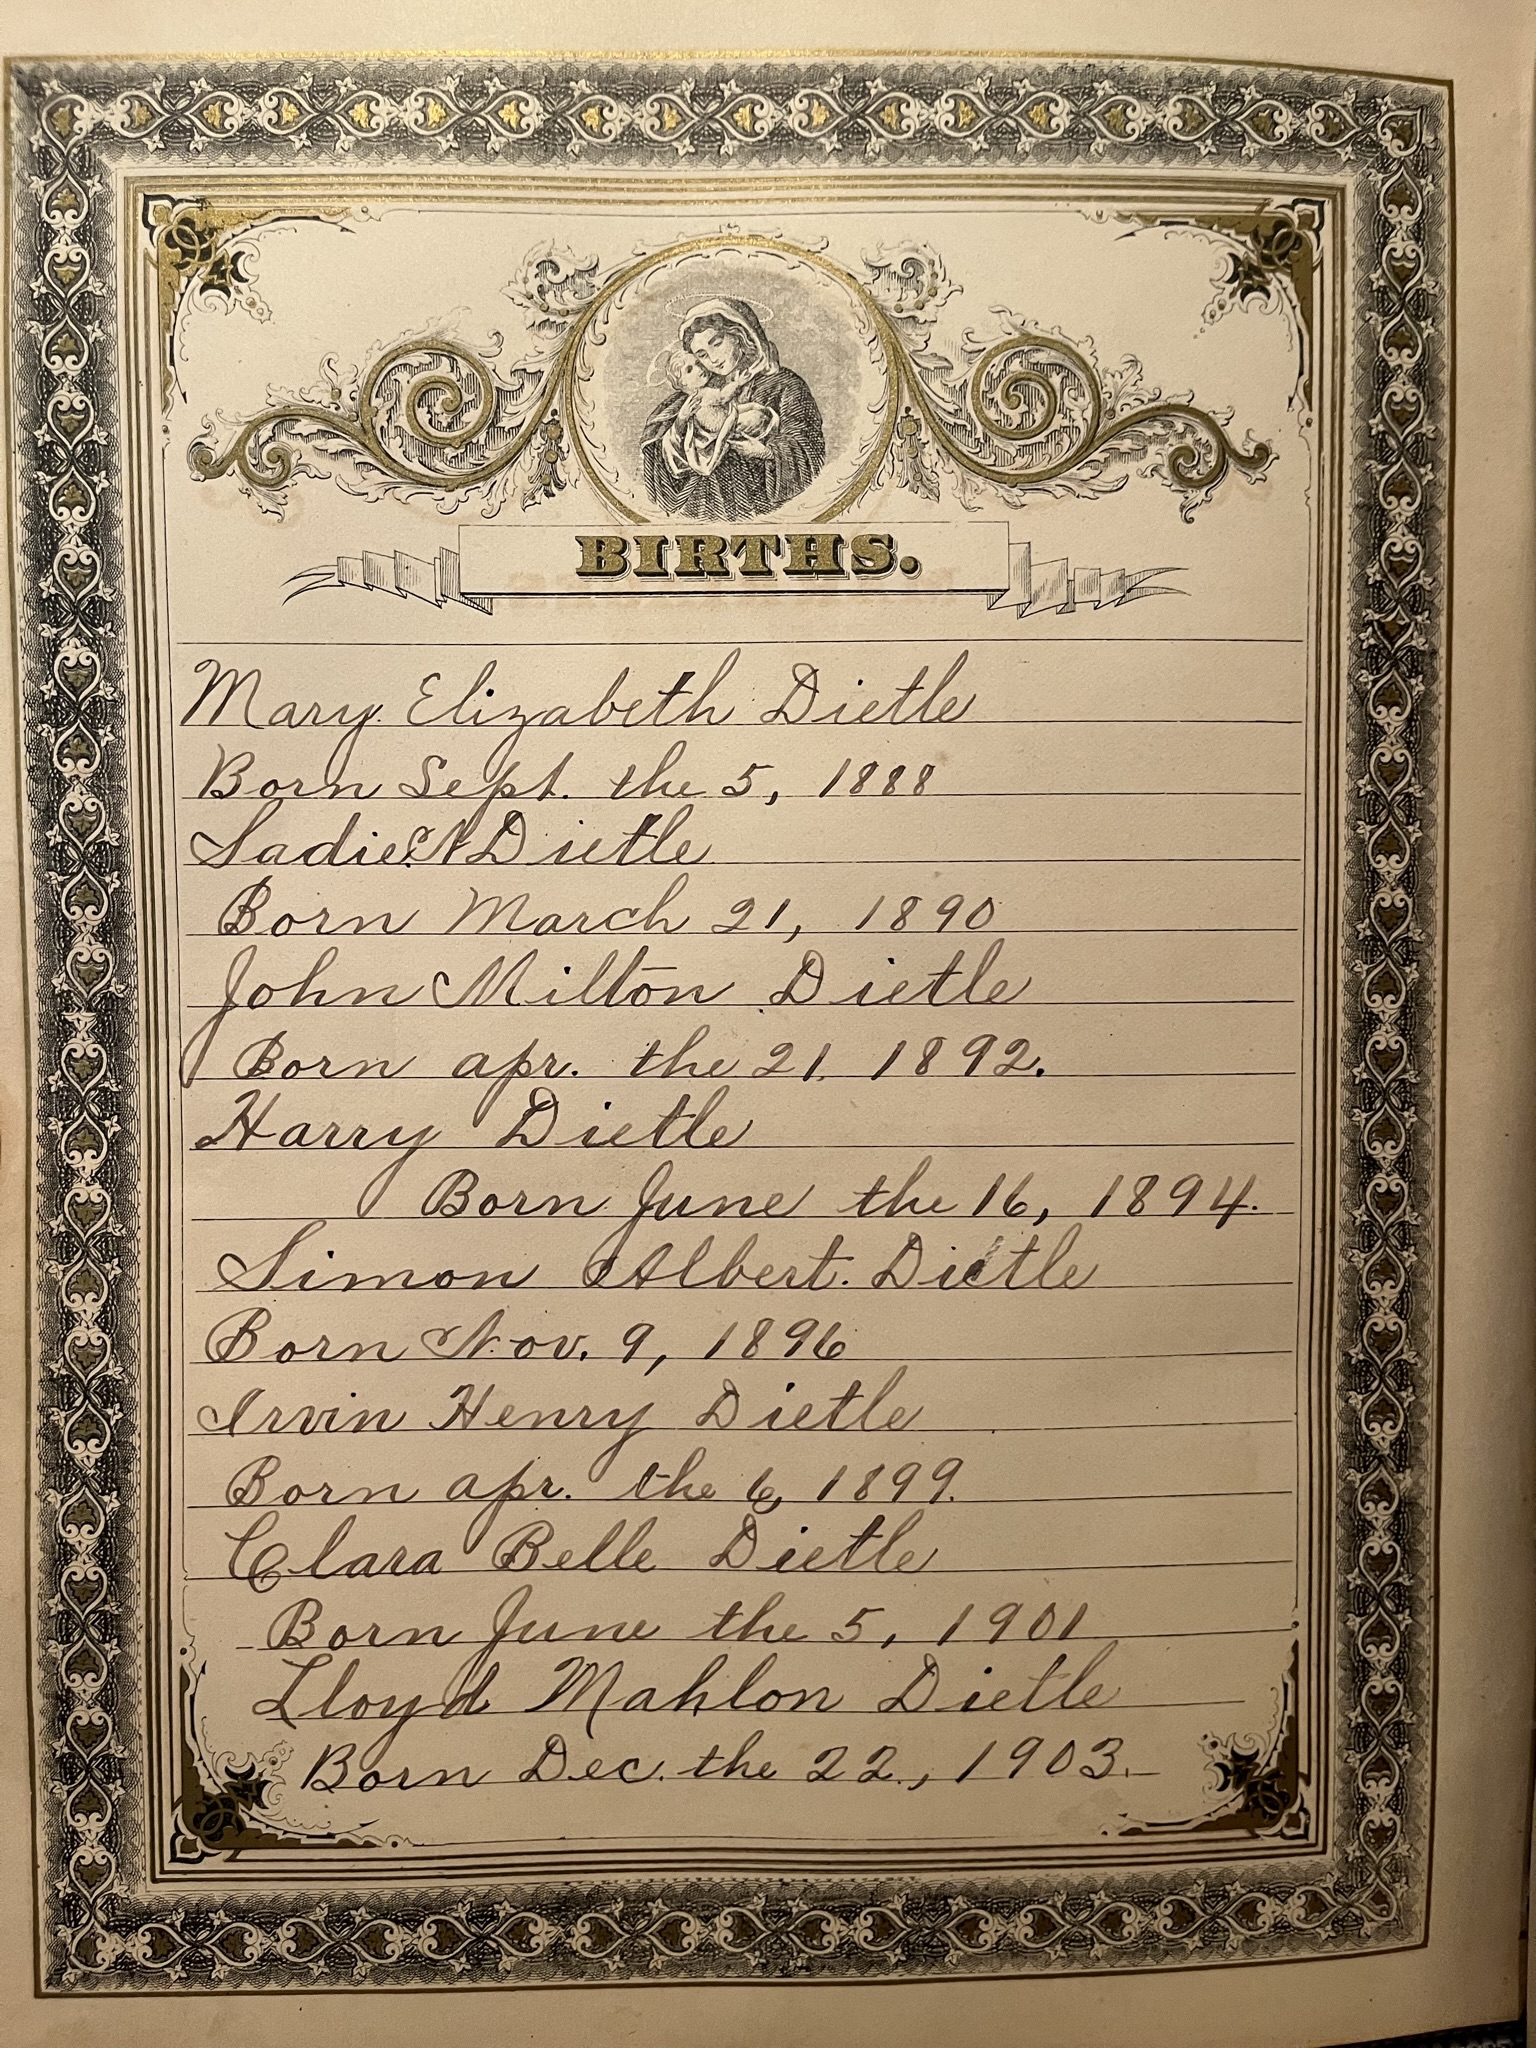 BIRTHS.
Mary Elizabeth Dietle
Born Sept. the 5, 1888
Sadie N Dietle
Born March 21, 1890
John Milton Dietle
Born apr. the 21, 1892.
Harry Dietle
Born June the 16, 1894.
Simon Albert. Dietle
Born Nov. 9, 1896
Irvin Henry Dietle
Born apr. the 6, 1899.
Clara Belle Dietle
Born June the 5, 1901
Lloyd Mahlon Dietle
Born Dec. the 22, 1903.